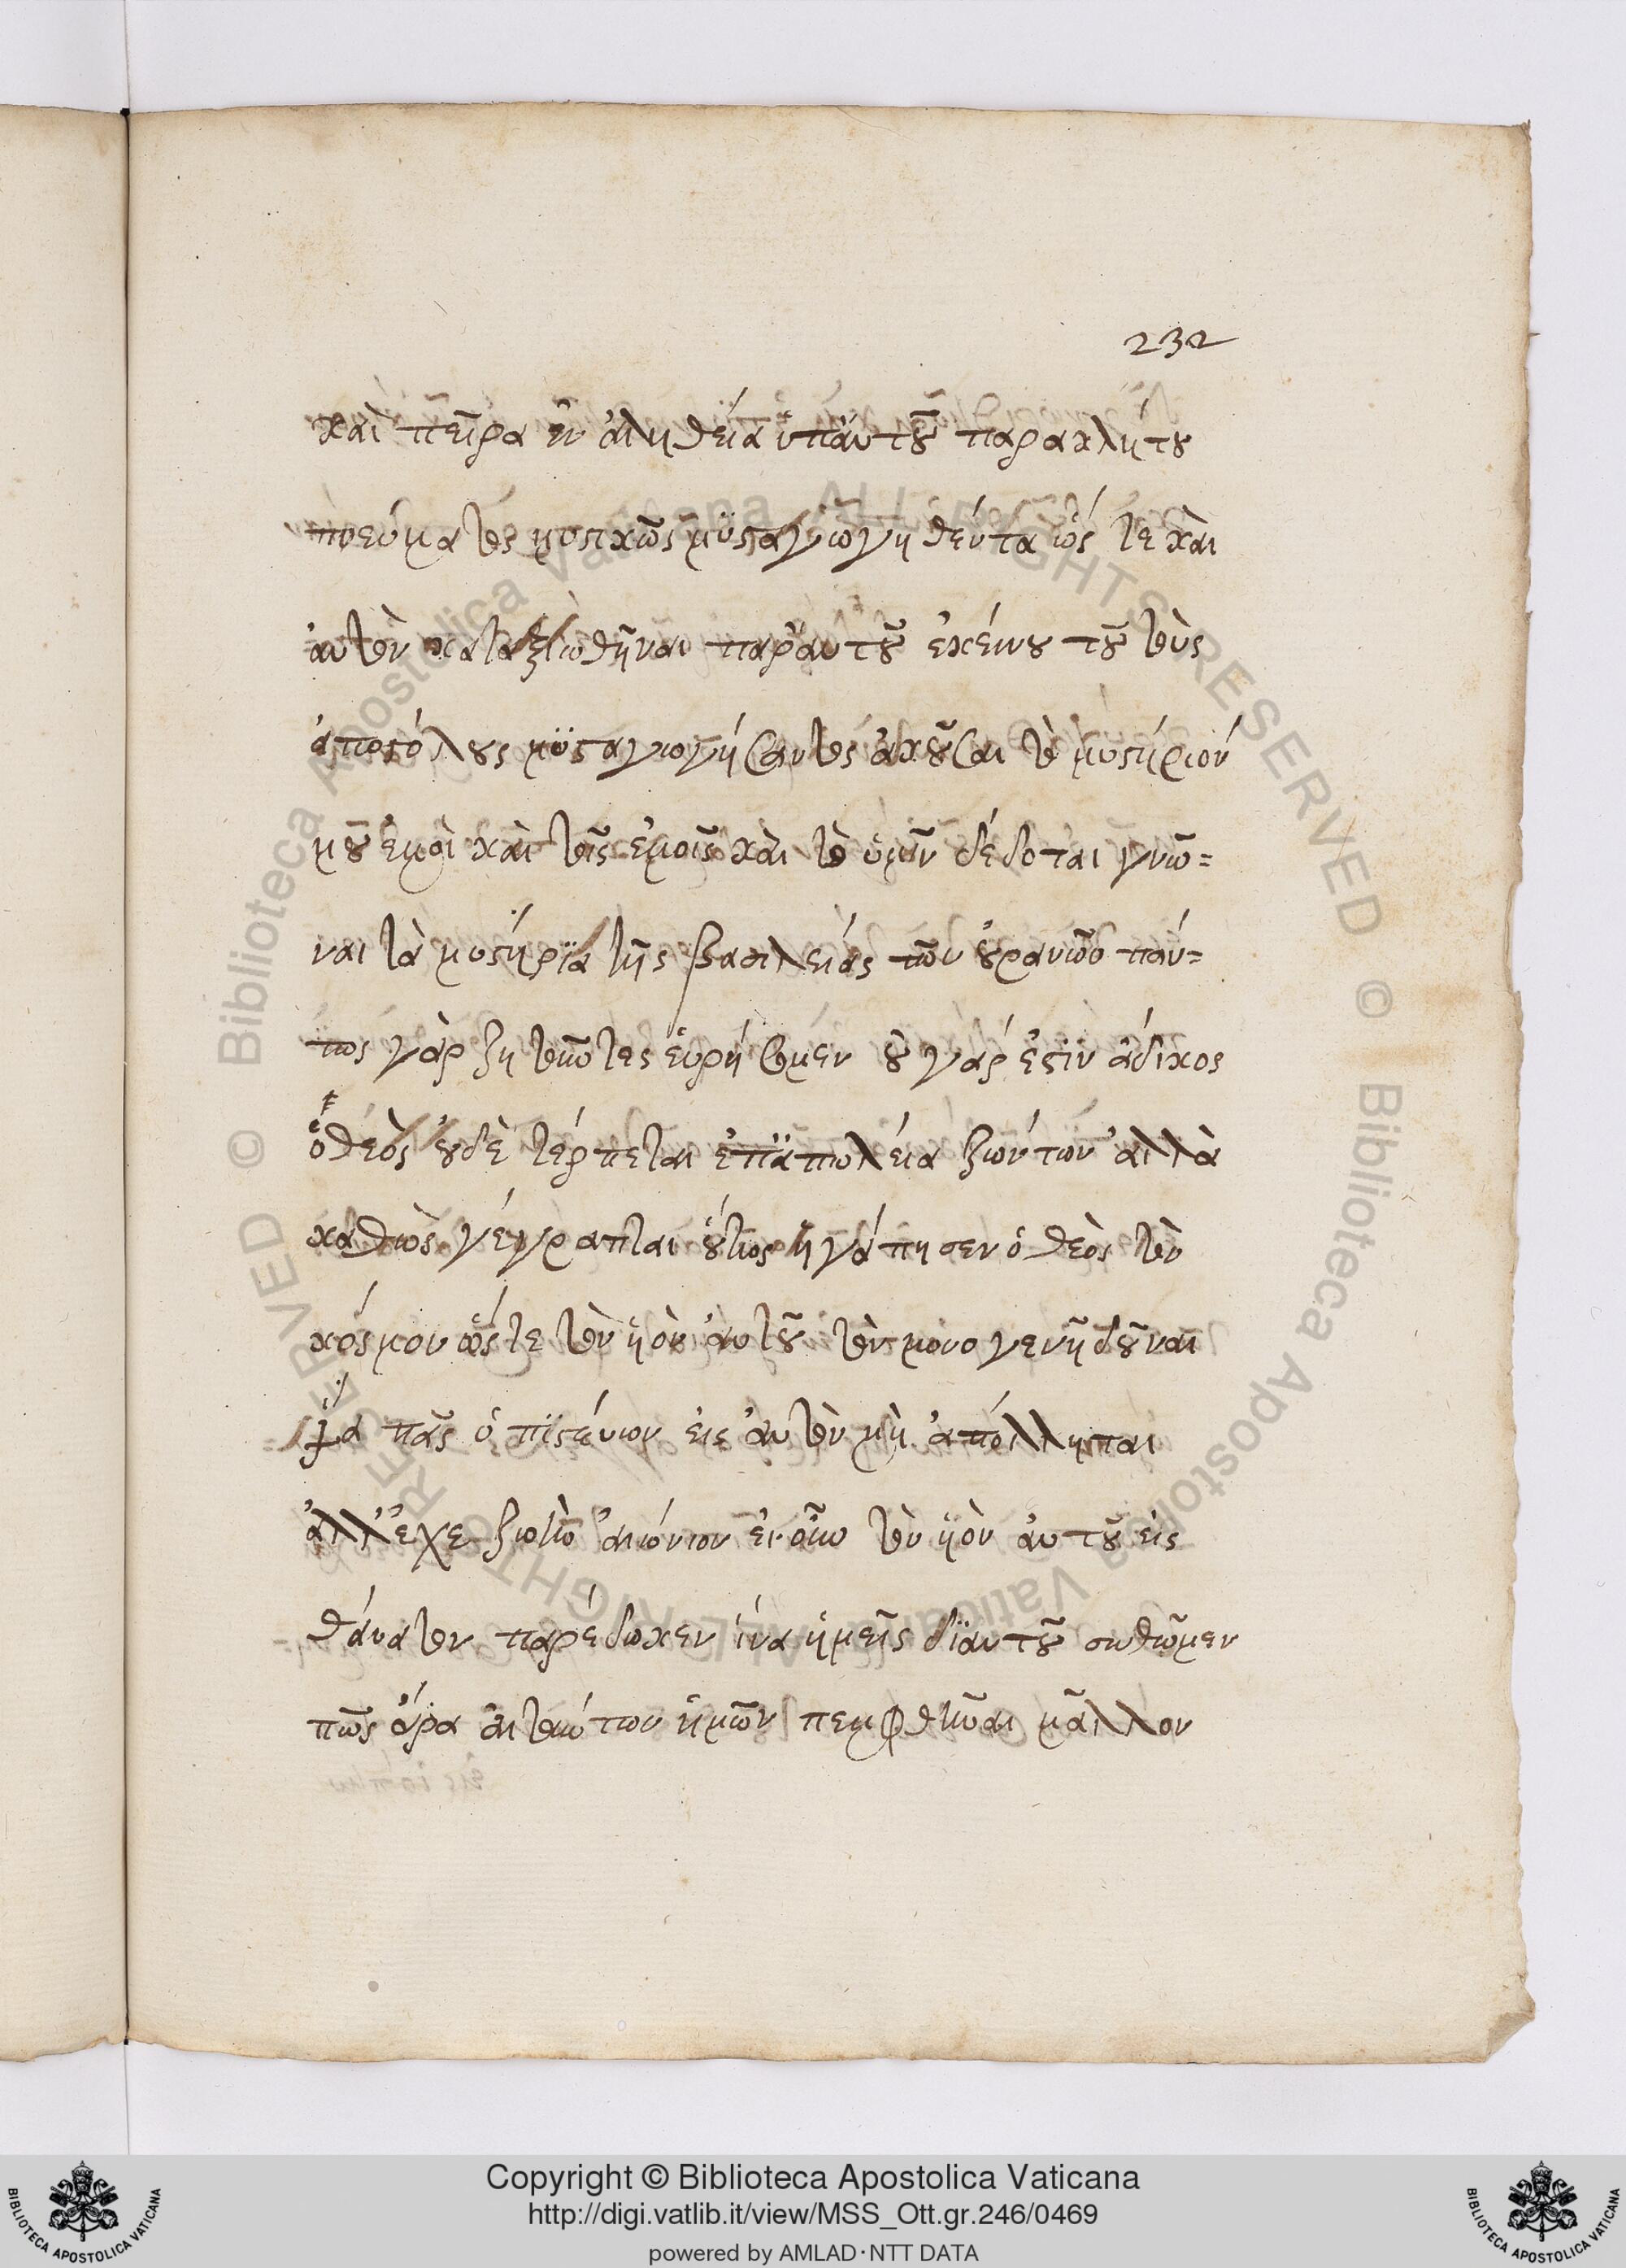 232
καὶ πεῖρα ἐν ἀληθεία ὑπ' ἀυτοῦ παρακλήτου
πνεύματος μυστικῶς μϋσταγωγηθέντα ὥς τε καὶ
ἀυτὸν καταξιωθῆναι παρ' ἀυτοῦ ἐκείνου τοῦ τοὺς
ἀποστόλους μϋσταγιογήσαντος ἀκοῦσαι τὸ μυστήριόν
μοῦ ἐμοὶ καὶ τοῖς ἐμοῖς καὶ τὸ ὑμῖν δέδοται γνῶ=
ναι τὰ μυστήρϊα τῆς βασιλείας τῶν οὐρανῶν πάν=
τως γὰρ ζητοῦντες ἑυρήσομεν οὐ γάρ ἐστϊν ἄδικος
ὁ θεὸς οὐδὲ τέρπεται ἐπ' ἀπωλεία ζώντων ἀλλὰ
καθὼς γέγραπται οὕτως ἠγάπησεν ὁ θεὸς τὸν
κόσμον ὥς τε τὸν ὑὸν ἀυτοῦ τὸν μονογενῆ δοῦναι
ἵνα πᾶς ὁ πϊστέυιον εἰς ἀυτὸν μὴ ἀπόλληται
ἀλλ' ἔχε ζωὴν ἀιώνιον εἰ οὖν τὸν ὑὸν ἀυτοῦ εἰς
θάνατον παρέδωκεν ἵνα ἡμεῖς δϊ ἀυτοῦ σωθῶμεν
πῶς ἄρα ἀιτούντων ἡμῶν πεμφθῆναι μᾶλλον
Copyright © Biblioteca Apostolica Vaticana
http://digi.vatlib.it/view/MSS_Ott.gr.246/0469
powered by AMLAD·NTT DATA
BIBLIOTECA APOSTOLICA VATICANA
BIBLIOTECA APOSTOLICA VATICANA